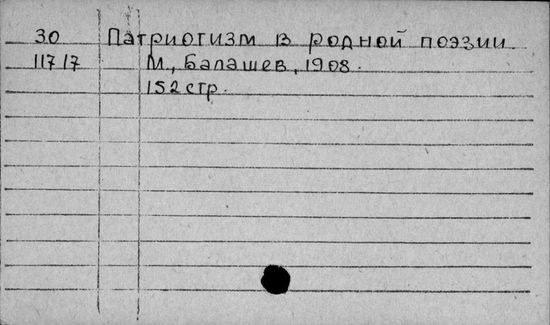 30 Патриотизм в родной поэзии
11717 М., Балашев, 1908.
152 стр.